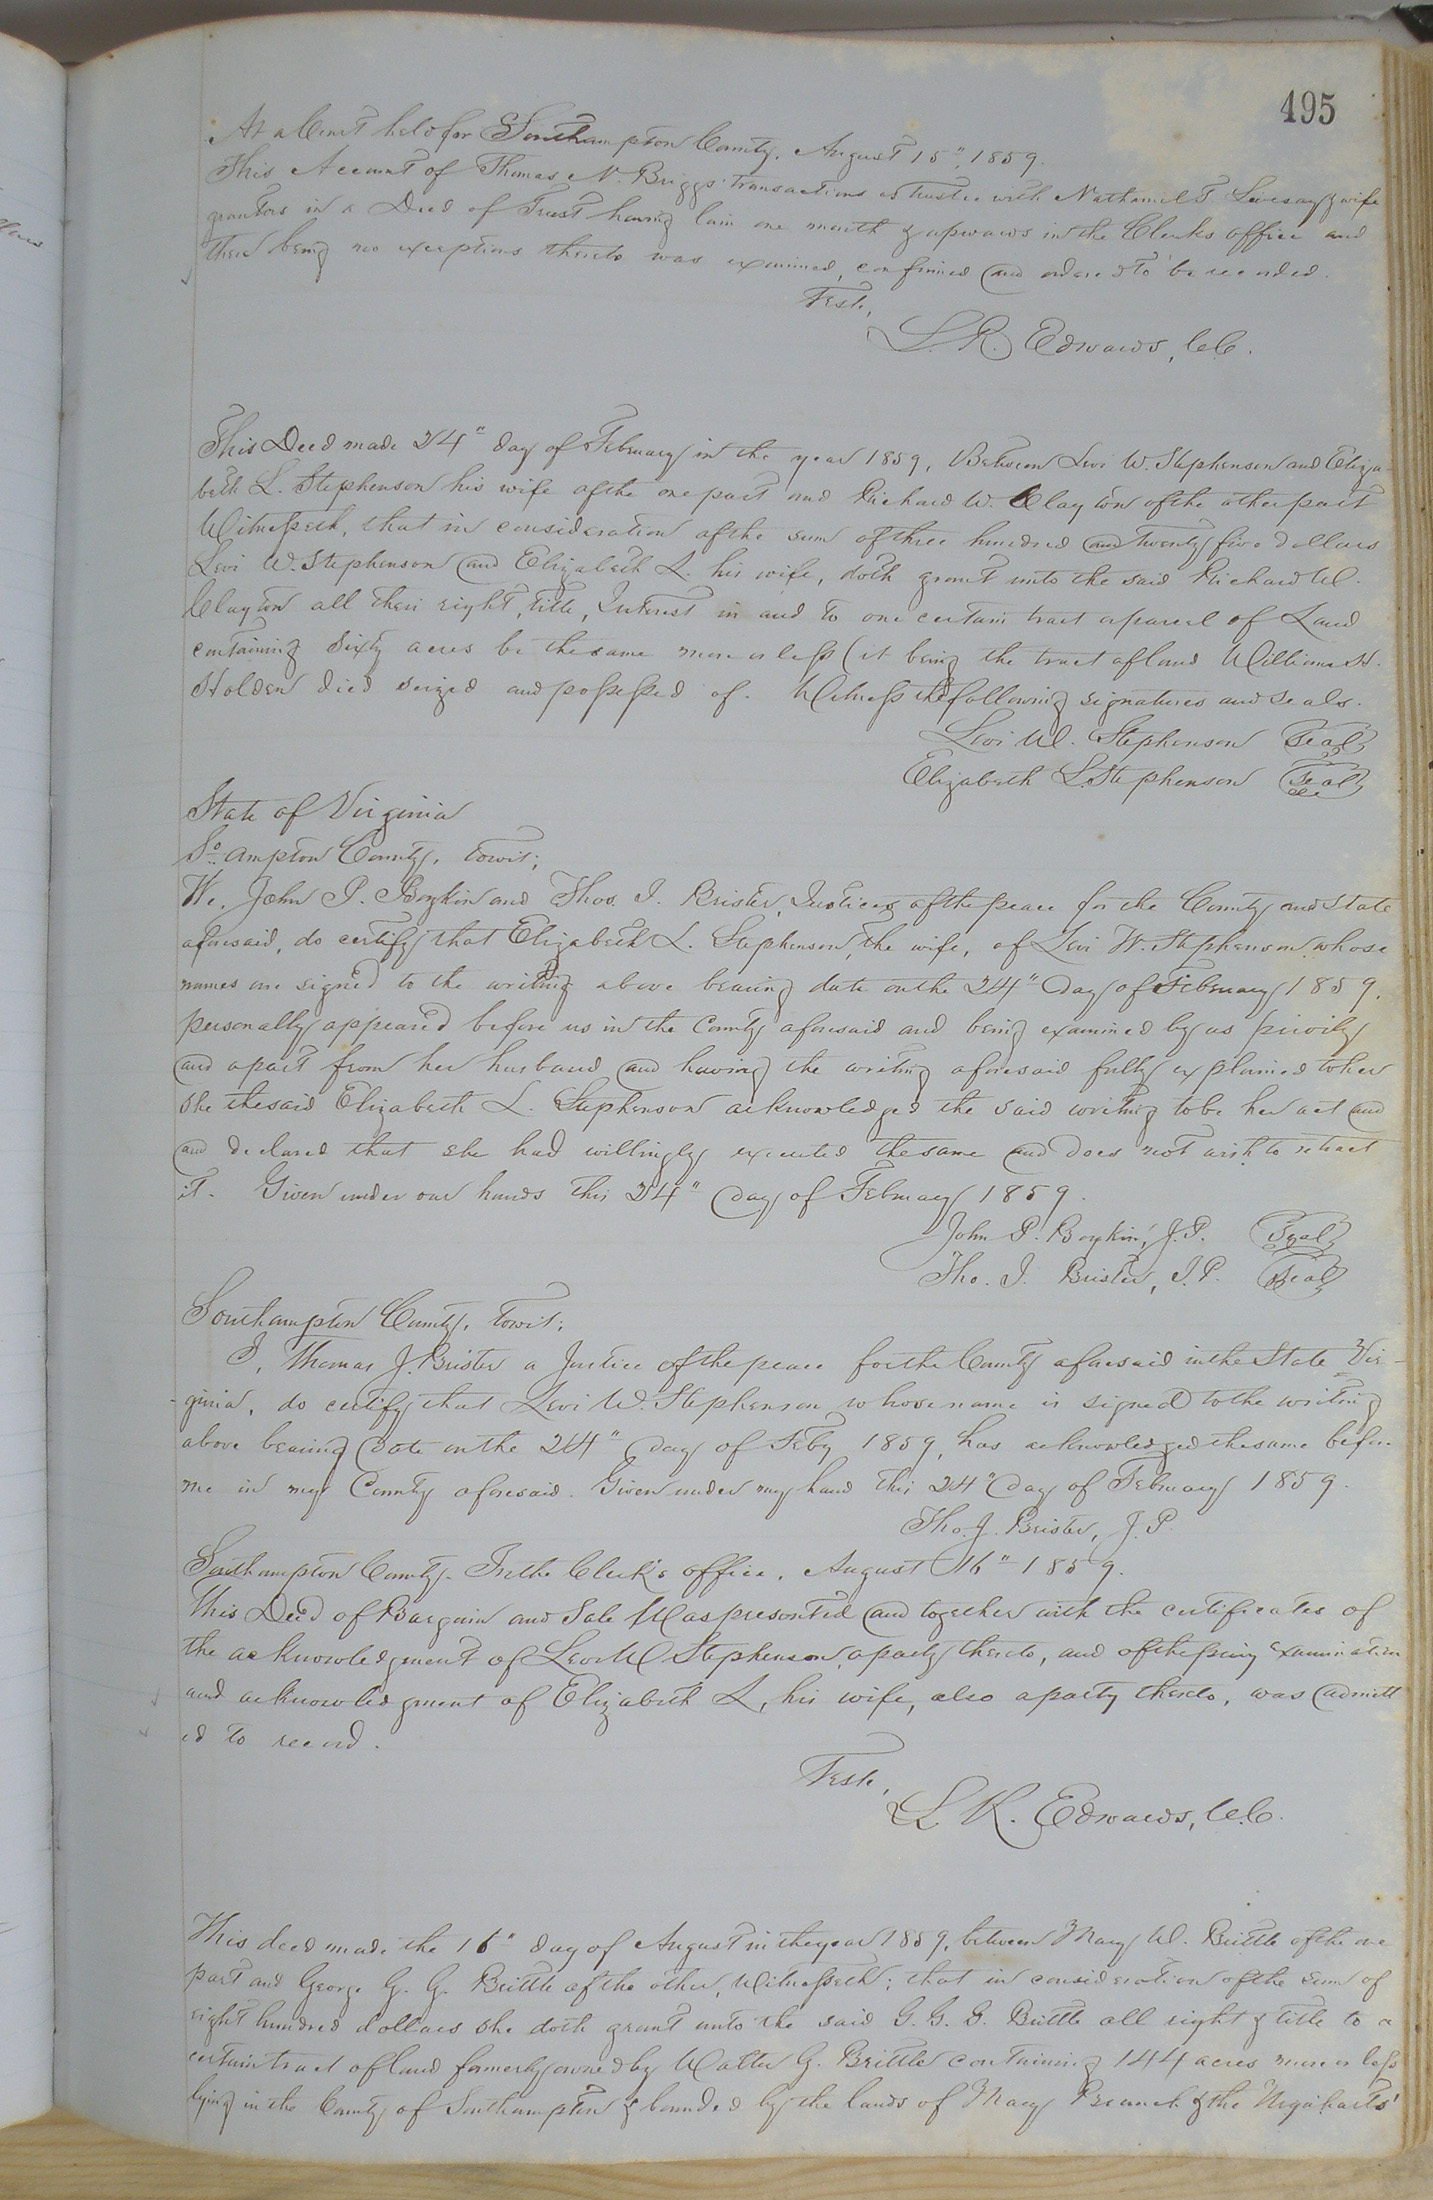 495
At a Court held for Southampton County, August 15" 1859.
This Account of Thomas N. Briggs' transactions as trustee with Nathaniel T Livesay & wife
grantors in a Deed of Trust having lain one month & upwards in the Clerks office and
there being no exceptions thereto was examined, confirmed and ordered to be recorded.
Teste,
L. R. Edwards, C.C.
This Deed made 24" day of February in the year 1859, Between Levi W. Stephenson and Eliza-
beth L. Stephenson his wife of the one part and Richard W. Clayton of the other part
Witnesseth, that in consideration of the sum of three hundred and twenty five dollars
Levi W. Stephenson and Elizabeth L. his wife, doth grant unto the said Richard W.
Clayton all their right, title, Interest in and to one certain tract or parcel of Land
containing Sixty acres be the same more or less (it being the tract of land William H.
Holden died seized and possessed of. Witness the following signatures and seals.
Levi W. Stephenson Seal
Elizabeth L. Stephenson Seal
State of Virginia
So. ampton County, towit;
We, John P. Boykin and Thos. J. Brister, Justices of the peace for the County and State
aforesaid, do certify that Elizabeth L. Stephenson, the wife, of Levi W. Stephenson, whose
names are signed to the writing above bearing date on the 24" day of February 1859,
personally appeared before us in the County aforesaid and being examined by us privily
and apart from her husband and having the writing aforesaid fully explained to her
she the said Elizabeth L. Stephenson acknowledged the said writing to be her act and
and declared that she had willingly executed the same and does not wish to retract
it. Given under our hands this 24" day of February 1859.
John P. Boykin, J.P. Seal
Tho. J. Brister, J.P. Seal
Southampton County, towit;
I, Thomas J. Brister a Justice of the peace for the County aforesaid in the State Vir-
-ginia, do certify that Levi W. Stephenson whose name is signed to the writing
above bearing date on the 24" day of Feby 1859, has acknowledged the same before
me in my County aforesaid. Given under my hand this 24" day of February 1859.
Tho. J. Brister, J.P.
Southampton County. In the Clerk's office, August 16" 1859.
This Deed of Bargain and Sale Was presented and together with the certificates of
the acknowledgment of Levi W Stephenson, a party thereto, and of the privy examination
and acknowledgment of Elizabeth L, his wife, also a party thereto, was admitt
ed to record.
Teste,
L R. Edwards, C.C.
This deed made the 16" day of August in the year 1859, between Mary W. Brittle of the one
part and George G. G. Brittle of the other, Witnesseth; that in consideration of the sum of
eight hundred dollars she doth grant unto the said G. G. G. Brittle all right & title to a
certain tract of land formerly owned by Walter G. Brittle containing 144 acres more or less
lying in the County of Southampton & bounded by the lands of Mary Branch & the Urquharts'